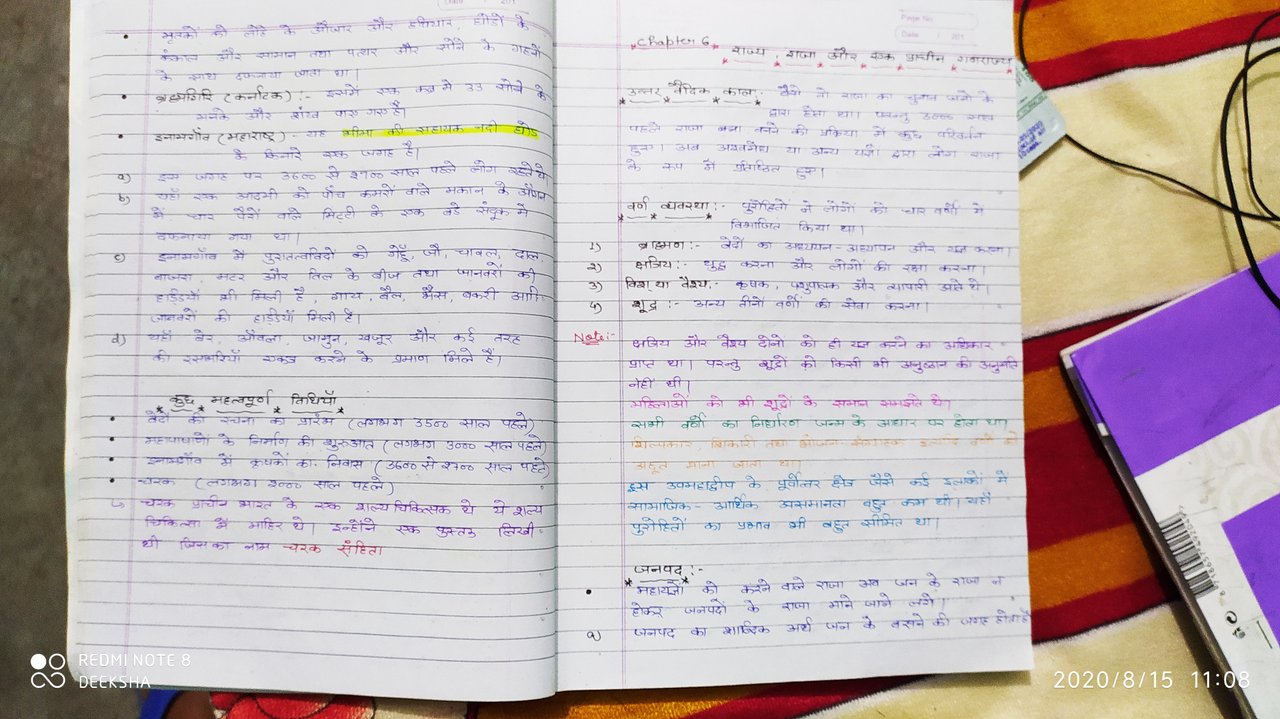 मृतकों को लोहे के औजार और हथियार, घोड़ों के
कंकाल और सामान तथा पत्थर और सोने के गहनों
के साथ दफनाया जाता था।
ब्रह्मगिरि (कर्नाटक) :- इसमें एक कब्र में 33 सोने के
मनके और शंख पाए गए है।
इनामगाँव (महाराष्ट्र) - यह भीमा की सहायक नदी घोड़
के किनारे एक जगह है।
a) इस जगह पर 3600 से 2700 साल पहले लोग रहते थे
b) यहाँ एक आदमी को पाँच कमरों वाले मकान के आँगन
में चार पैरों वाले मिट्टी के एक बडे संदूक में
दफनाया गया था।
c) इनामगाँव में पुरातत्वविदों को गेहूँ, जौ, चावल, दाल
बाजरा, मटर और तिल के बीज तथा जानवरों की
हड्डियाँ भी मिली है, गाय, बैल, भैंस, बकरी आदि
जानवरों की हड्डियाँ मिली है।
d) यहाँ बेर, आँवला, जामुन खजूर और कई तरह
की रसभरियाँ एकत्र करने के प्रमाण मिले है।
कुछ महत्वपूर्ण तिथियाँ
वेदों की रचना का प्रारंभ (लगभग 3500 साल पहले)
महापाषाणों के निर्माण की शुरुआत (लगभग 3000 साल पहले)
इनामगाँव में कृषकों का निवास (3600 से 2700 साल पहले)
चरक (लगभग 2000 साल पहले)
↳ चरक प्राचीन भारत के एक शल्य चिकित्सक थे ये शल्य
चिकित्सा में माहिर थे। इन्होंने एक पुस्तक लिखी
थी जिसका नाम चरक संहिता
Page No.
Date / 201
Chapter 6
राज्य, राजा और एक प्राचीन गणराज्य
उत्तर वैदिक काल :- वैसे तो राजा का चुनाव जनों के
द्वारा होता था। परन्तु 3000 साल
पहले राजा बना बनने की प्रक्रिया में कुछ परिवर्तन
हुए। अब अश्वमेध या अन्य यज्ञों द्वारा लोग राजा
के रूप में प्रतिष्ठित हुए।
वर्ण व्यवस्था :- पुरोहितों ने लोगों को चार वर्णों में
विभाजित किया था।
1) ब्राह्मण :- वेदों का अध्ययन-अध्यापन और यज्ञ करना।
2) क्षत्रिय :- युद्ध करना और लोगों की रक्षा करना।
3) विश या वैश्य :- कृषक, पशुपालक और व्यापारी आते थे।
4) शूद्र :- अन्य तीनों वर्णों की सेवा करना।
Note :- क्षत्रिय और वैश्य दोनों को ही यज्ञ करने का अधिकार
प्राप्त था। परन्तु शूद्रों को किसी भी अनुष्ठान की अनुमति
नहीं थी।
महिलाओं को भी शूद्रों के समान समझते थे।
सभी वर्णों का निर्धारण जन्म के आधार पर होता था।
शिल्पकार, शिकारी तथा भोजन-संग्राहक इत्यादि को
अछूत माना जाता था।
इस उपमहाद्वीप के पूर्वोत्तर क्षेत्र जैसे कई इलाकों में
सामाजिक-आर्थिक असमानता बहुत कम थी। यहाँ
पुरोहितों का प्रभाव भी बहुत सीमित था।
जनपद :-
महायज्ञों को करने वाले राजा अब जन के राजा न
होकर जनपदों के राजा माने जाने लगे।
a) जनपद का शाब्दिक अर्थ जन के बसने की जगह होता है
REDMI NOTE 8
DEEKSHA
2020/8/15 11:08